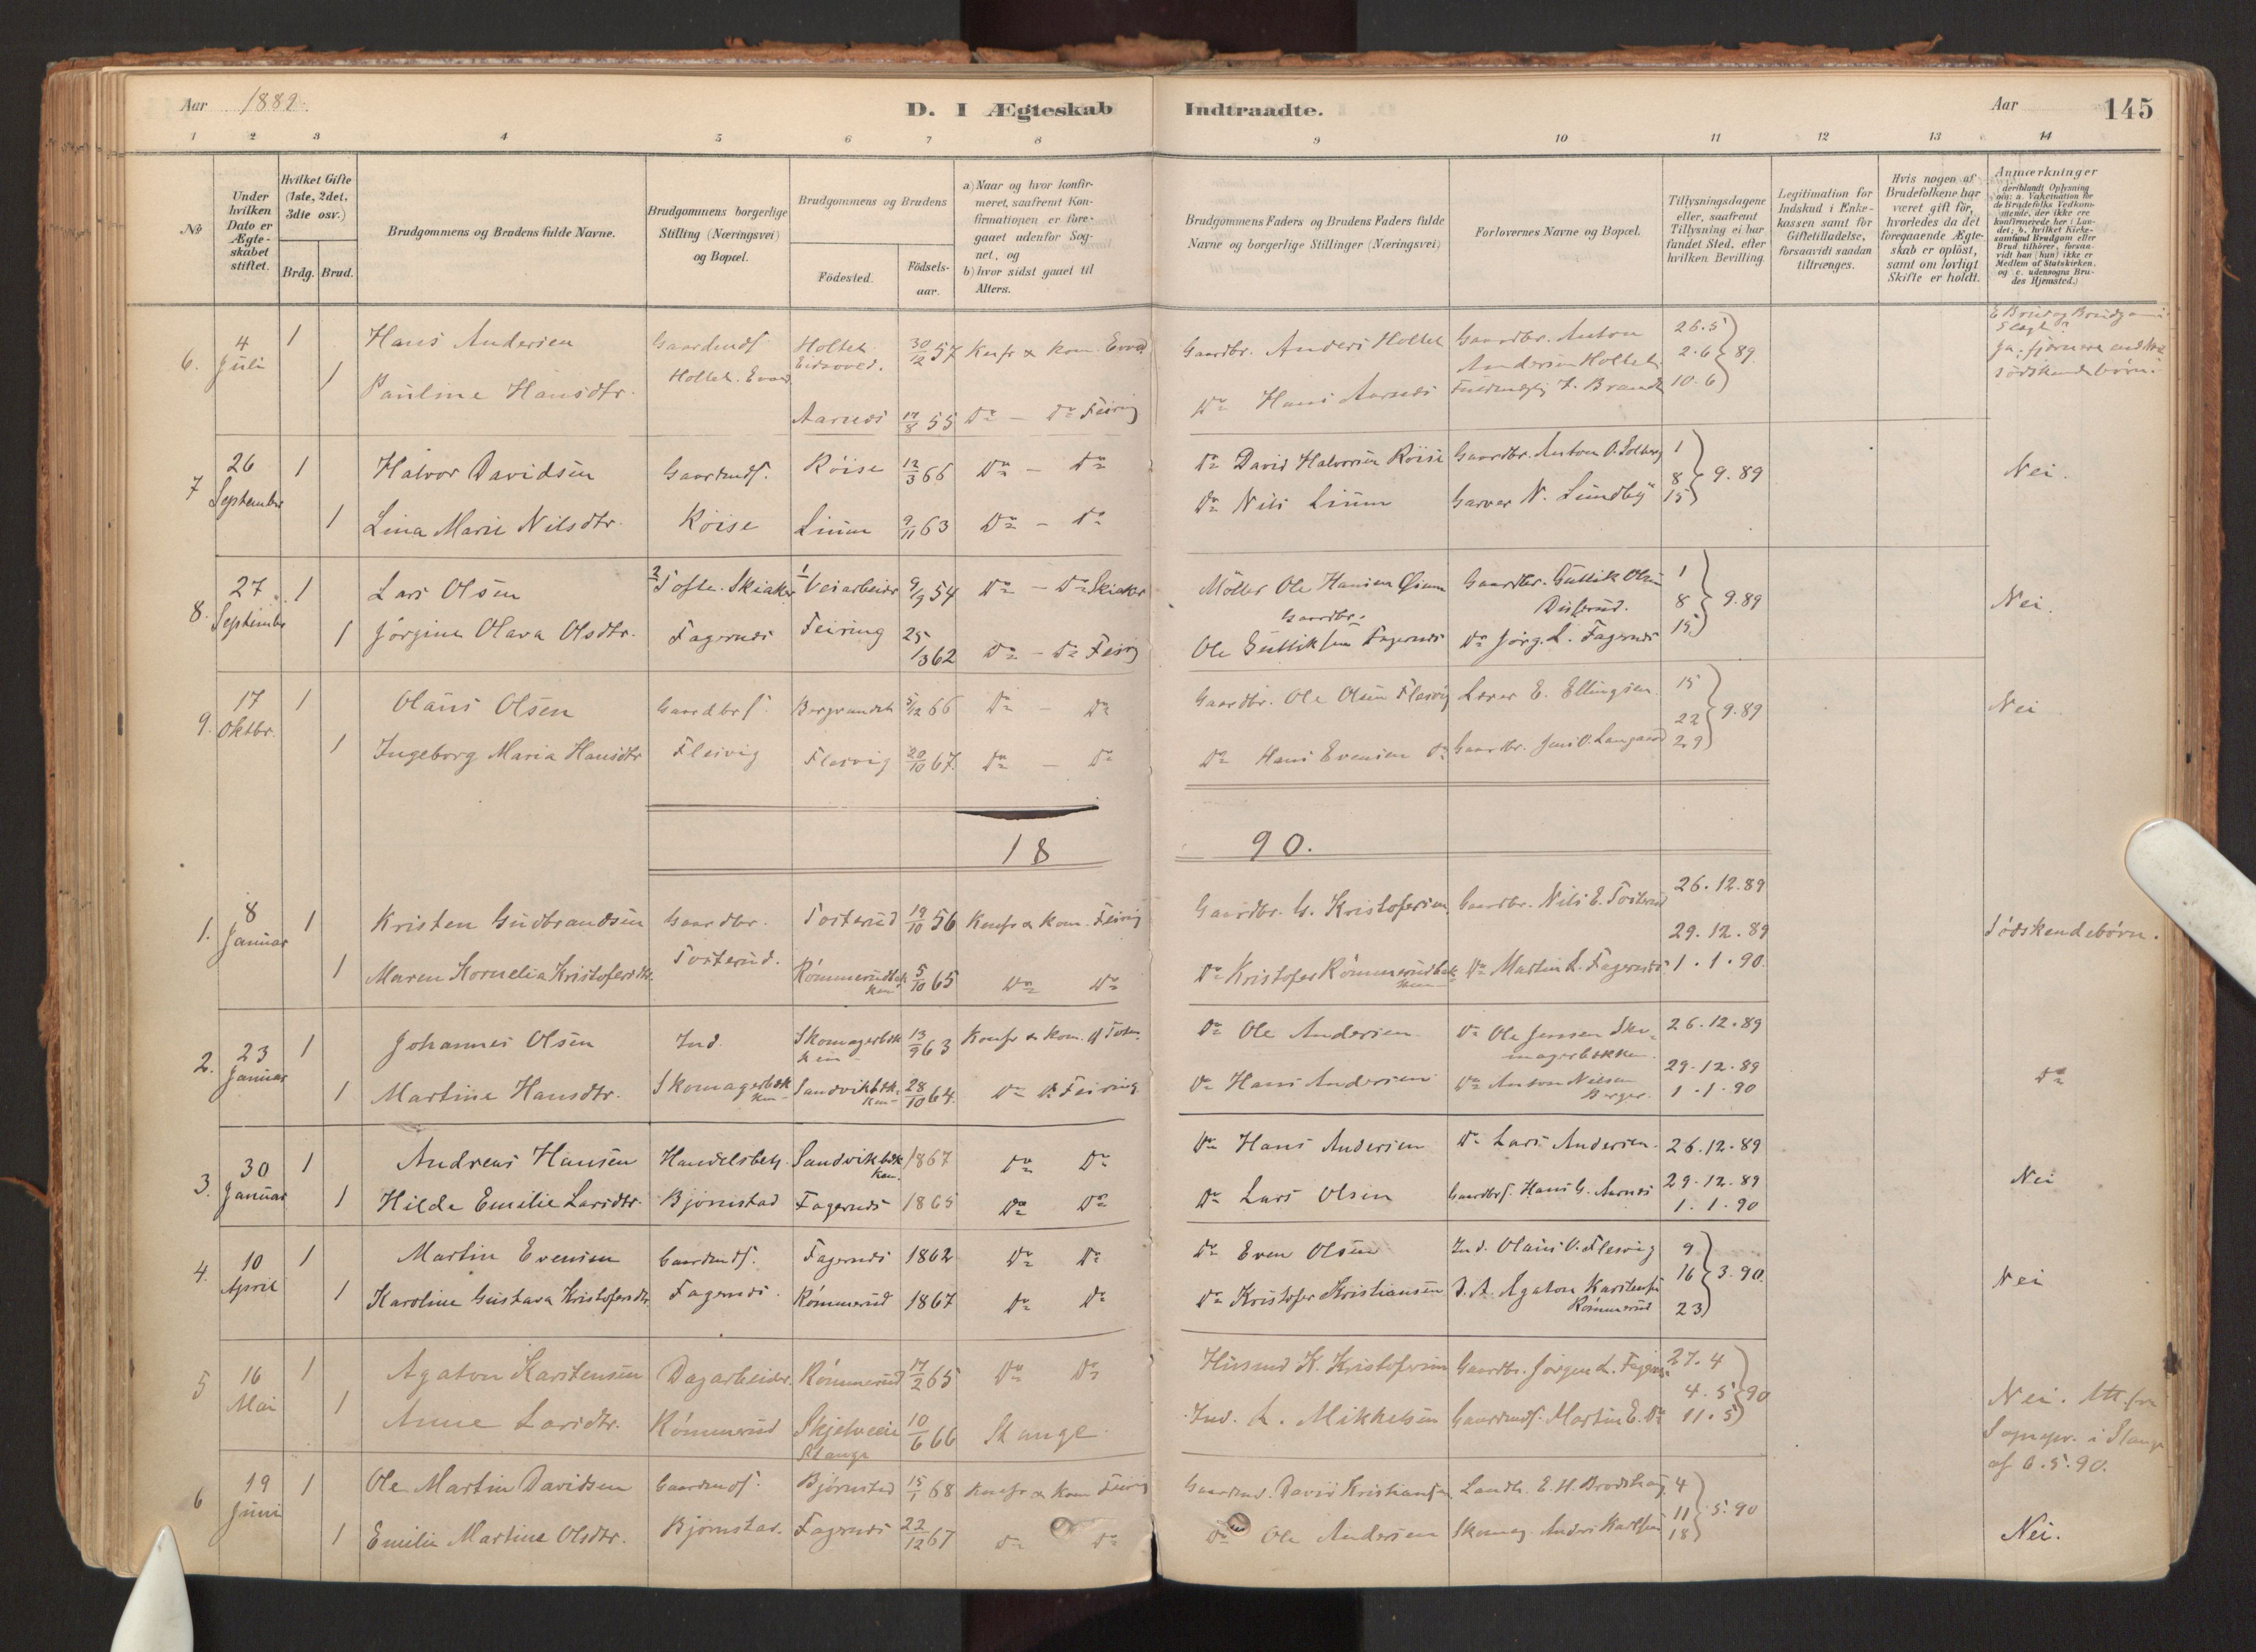 Aar 1889.
D. I Ægteskab Indtraadte.
Aar 145
1 2 3 4 5 6 7 8 9 10 11 12 13 14
No
Under hvilken Dato er Ægteskabet stiftet.
Hvilket Gifte (1ste, 2det, 3die osv.)
Brdg. Brud.
Brudgommens og Brudens fulde Navne.
Brudgommens borgerlige Stilling (Næringsvei) og Bopæl.
Brudgommens og Brudens
Födested.
Födsels-aar.
a) Naar og hvor konfirmeret, saafremt Konfirmationen er foregaaet udenfor Sognet, og
b) hvor sidst gaaet til Alters.
Brudgommens Faders og Brudens Faders fulde Navne og borgerlige Stillinger (Næringsvei)
Forlovernes Navne og Bopæl.
Tillysningsdagene eller, saafremt Tillysning ei har fundet Sted, efter hvilken Bevilling.
Legitimation for Indskud i Enkekassen samt for Giftetilladelse, forsaavidt saadan tiltrænges.
Hvis nogen af Brudefolkene har været gift för, hvorledes da det foregaaende Ægteskab er oplöst, samt om lovligt Skifte er holdt.
Anmærkninger
(deriblandt Oplysning om: a. Vakcination for de Brudefolks Vedkommende, der ikke ere konfirmerede her i Landet; b. hvilket Kirkesamfund Brudgom eller Brud tilhörer, forsaavidt han (hun) ikke er Medlem af Statskirken, og c. udensogns Brudes Hjemsted.)
6. 4 Juli 1 Hans Andersen Gaardmds. Holtet Eidsvold. 30/12 57 Konfr & kom. Gaardbr. Anders Holtet Gaardbr. Anton Andersen Holtet 26.5 2.6 10.6 } 89.
1 Pauline Hansdtr. Holtet. Aarnes 17/8 55 Do - Do Feiring Do Hans Aarnes Brandt
7 26 September 1 Halvor Davidsen Gaardmds. Röise 12/3 66 Do - Do Do David Halvorsen Röise Gaardbr. Anton O. Solberg 1 8 15 } 9.89 Nei.
1 Lina Marie Nilsdtr. Röise Linum 9/11 63 Do - Do Do Nils Linum Garver N. Lundby
8. 27 September 1 Lars Olsen 2 Tofte. Skiaker 1 Veiarbeider 9/9 54 Do - Do Skiaker Möller Ole Hansen Gaardbr. Gullik Olsen Disserud. 1 8 15 } 9.89 Nei.
1 Jörgine Olava Olsdtr. Fagernes Feiring 25/3 62 Do - Do Feiring Gaardbr. Ole Gulliksen Fagernes Do Jörg. L. Fagernes
9. 17 Oktbr. 1 Olaus Olsen Gaardbrs. 5/12 66 Do - Do Gaardbr. Ole Olsen Flesvig Lærer E. Ellingsen 15 22 29 } 9.89 Nei
1 Ingeborg Maria Hansdtr Flesvig Flesvig 20/10 67. Do - Do Do Hans Evensen Do Gaardbr. Jens O. Langaard
18 90.
1. 8 Januar 1 Kristen Gudbrandsen Gaardbr. Tosterud 19/10 56 Konfr & kom. Feiring Gaardbr. G. Kristofersen Gaardbr. Nils E. Tosterud 26.12.89
1 Maren Kornelia Kristofersdtr. Tosterud. Römmerudbækken 5/10 65 Do Do Do Kristofer Römmerudbækken Do Martin L. Fagernes 29.12.89 1.1.90. Södskendebörn.
2. 23 Januar 1 Johannes Olsen Ind. Skomagerbækken 13/9 63 Konfr & kom. Do Ole Andersen Do Ole Jensen Skomagerbækken 26.12.89
1 Martine Hansdtr. Skomagerbækken Sandvikbækken 28/10 64. Do Do Feiring Do Hans Andersen Do Anton Nilsen Berger. 29.12.89 1.1.90 Do
3. 30 Januar 1 Andreas Hansen Handelsbetj. Sandvikbækken 1867 Do Do Do Hans Andersen Do Lars Andersen. 26.12.89
1 Hilda Emilie Larsdtr. Bjørnstad Fagernes 1865 Do Do Do Lars Olsen Gaardbrs. Hans G. Aarnes 29.12.89 1.1.90 Nei
4. 10 April 1 Martin Evensen Gaardmds. Fagernes 1862 Do Do Do Even Olsen Ind. Olaus O. Flesvig 9 16 23 } 3.90. Nei
1 Karoline Gustava Kristofersdtr. Fagernes. Römmerud 1867 Do Do Do Kristofer Kristiansen Agaton Karstensen Römmerud
5 16 Mai 1 Agaton Karstensen Dagarbeider. Römmerud 17/2 65 Do Do Husmd K. Kristofersen Gaardbr. Jörgen L. Fagernes 27.4 4.5 11.5 } 90
1 Anne Larsdtr. Römmerud Skjelveie Stange 10/6 66 Stange. Ind. L. Mikkelsen Gaardmds. Martin E. Do Nei. Att. fra Sognepr. i Stange af 6.5.90.
6 19 Juni 1 Ole Martin Davidsen Gaardmds. Bjørnstad 15/1 68 Konfr & kom Feiring Gaardmd. David Kristiansen Landh. E. H. Brodshaug 4 11 18 } 5.90
1 Emilie Martine Olsdtr. Bjørnstad. Fagernes 22/12 67 Do Do Do Ole Andersen Skomag. Anders Karlsen Nei.